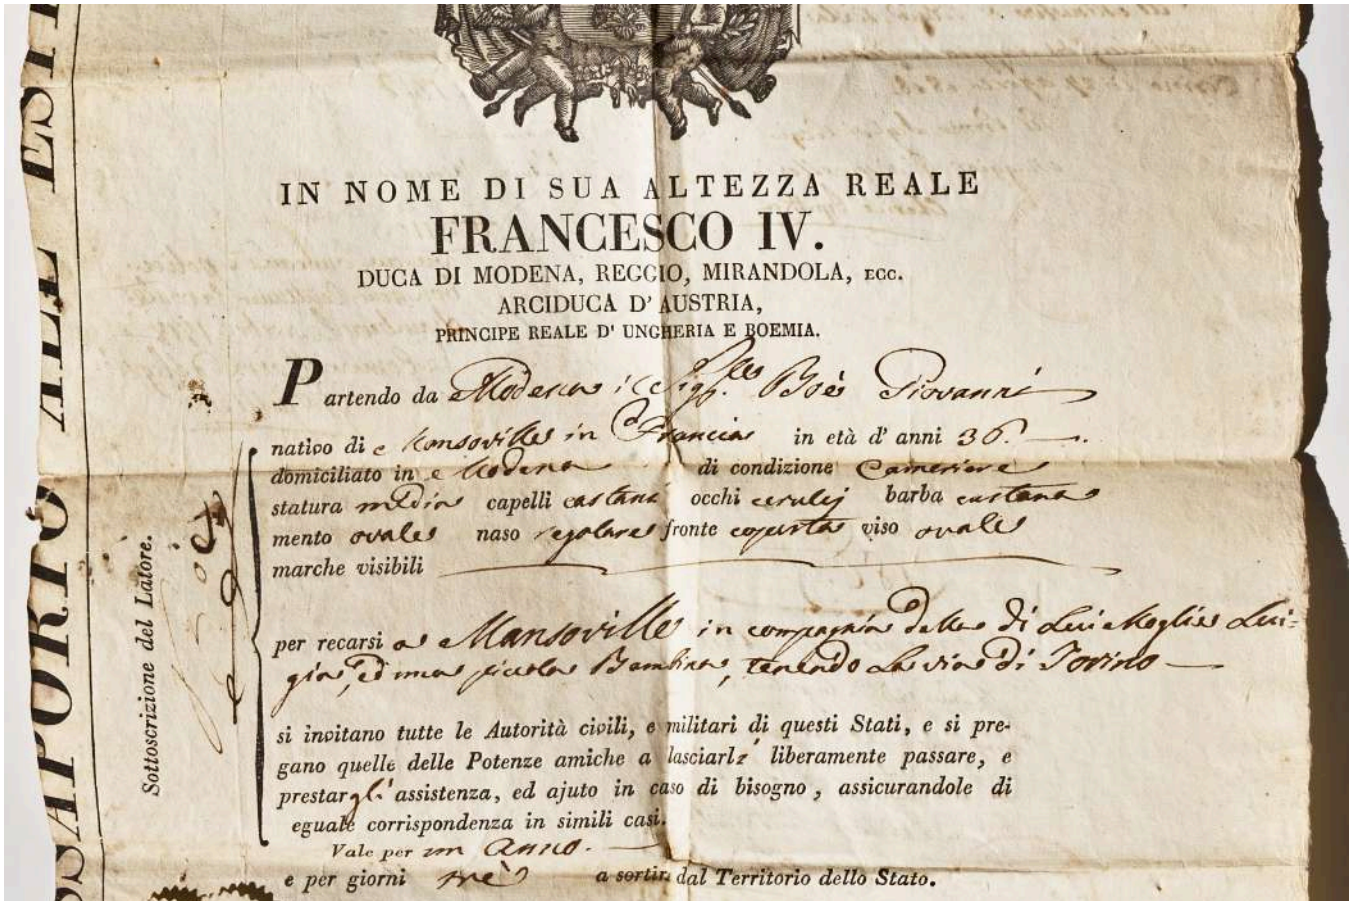 IN NOME DI SUA ALTEZZA REALE
FRANCESCO IV.
DUCA DI MODENA, REGGIO, MIRANDOLA, ECC.
ARCIDUCA D' AUSTRIA,
PRINCIPE REALE D' UNGHERIA E BOEMIA.
Partendo da Modena il Sig.r Boè Giovanni
nativo di Mansoville in Francia in età d' anni 36.
domiciliato in Modena di condizione Cameriere
statura media capelli castani occhi cerulej barba castana
mento ovale naso regolare fronte coperta viso ovale
marche visibili
per recarsi a Mansoville in compagnia della di Lui Moglie Lui-
gia, ed una piccola Bambina, tenendo la via di Torino
si invitano tutte le Autorità civili, e militari di questi Stati, e si pre-
gano quelle delle Potenze amiche a lasciarli liberamente passare, e
prestargli assistenza, ed ajuto in caso di bisogno, assicurandole di
eguale corrispondenza in simili casi.
Vale per un Anno.
e per giorni trè a sortir dal Territorio dello Stato.
Sottoscrizione del Latore.
SSAPORTO ALL' EST